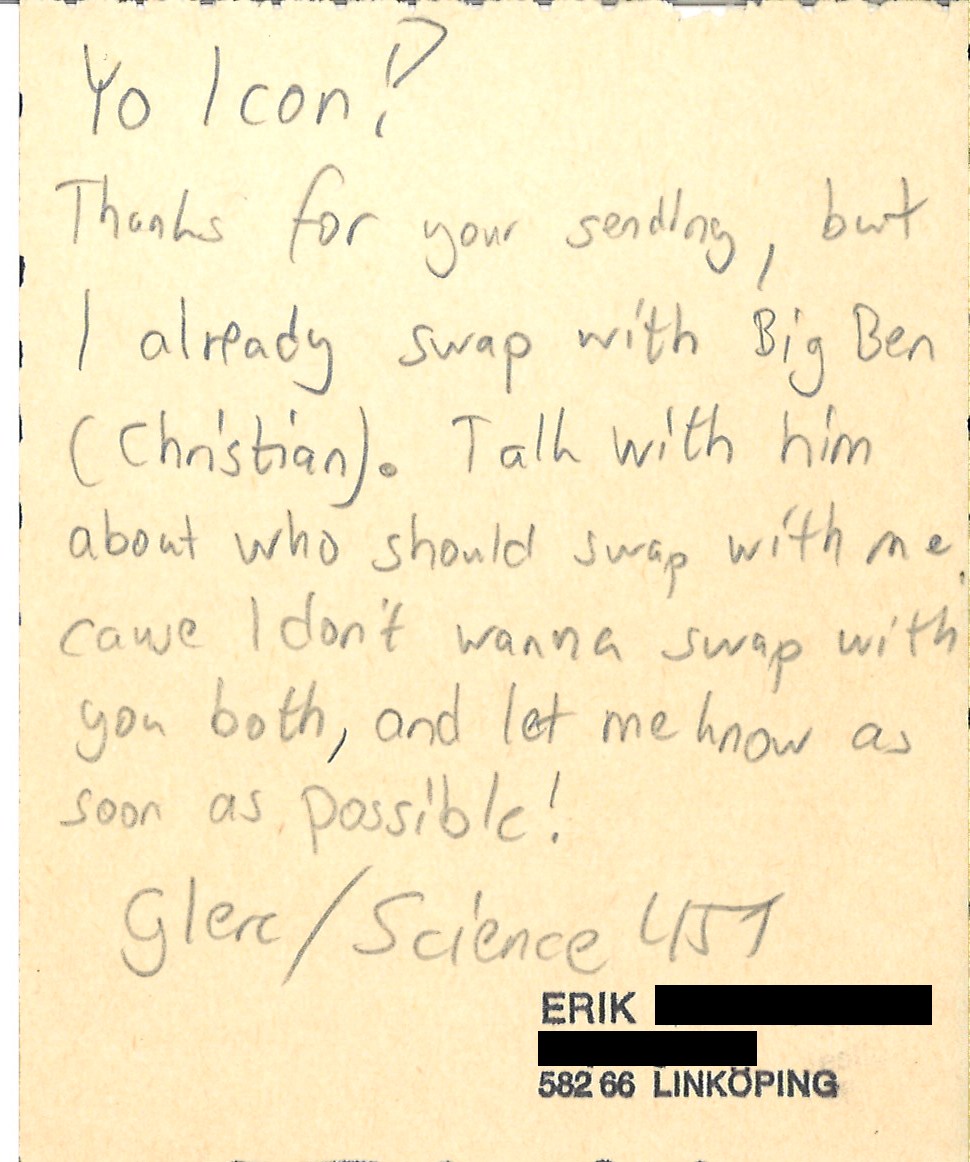 Yo Icon!?
Thanks for your sending, but
I already swap with Big Ben
(Christian). Talk with him
about who should swap with me,
cause I don't wanna swap with
you both, and let me know as
soon as possible!
Glerc/Science 451
ERIK
582 66 LINKÖPING